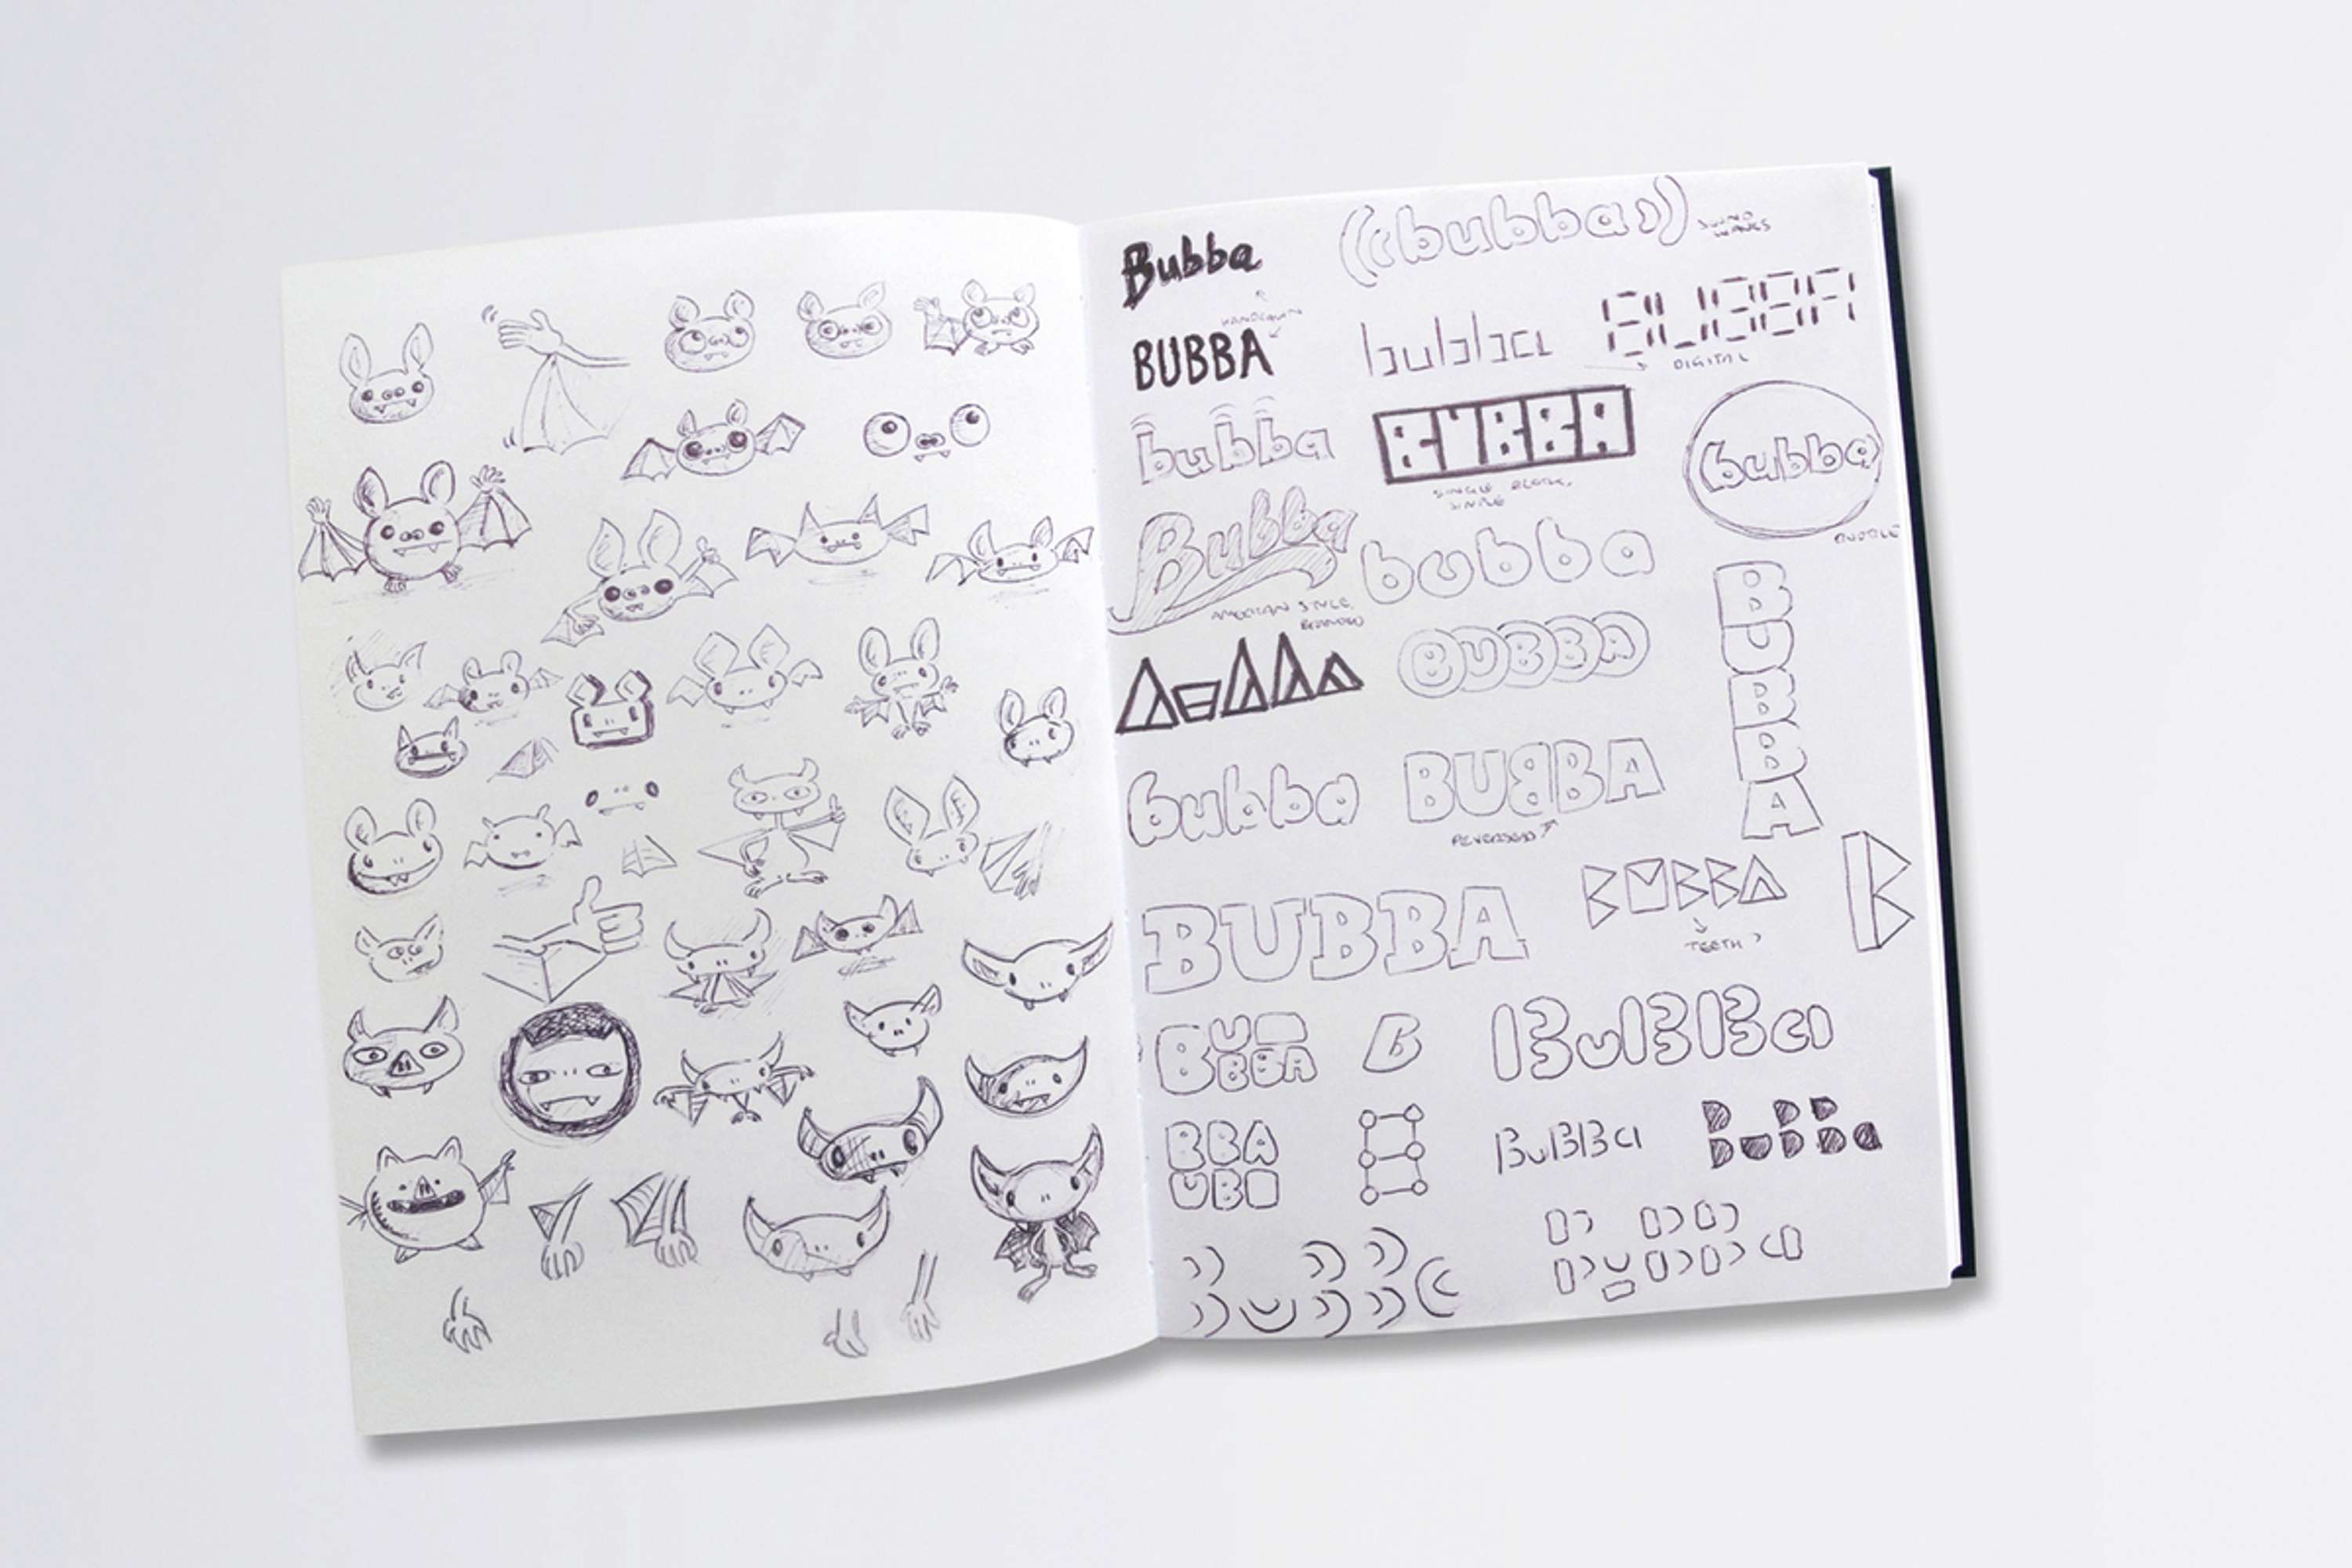 Bubba
((bubba))
SOUND
WAVES
HANDDRAWN
BUBBA
bubba
BUBBA
DIGITAL
bubba
BUBBA
SINGLE BLOCK,
SIMPLE
bubba
BUBBLE
Bubba
AMERICAN STYLE,
bubba
BUBBA
BUBBA
bubba
BUBBA
REVERSED
BUBBA
BUBBA
TEETH?
B
BUBBA
B
BuBBa
BBA
UB
B
BuBBa
BuBBa